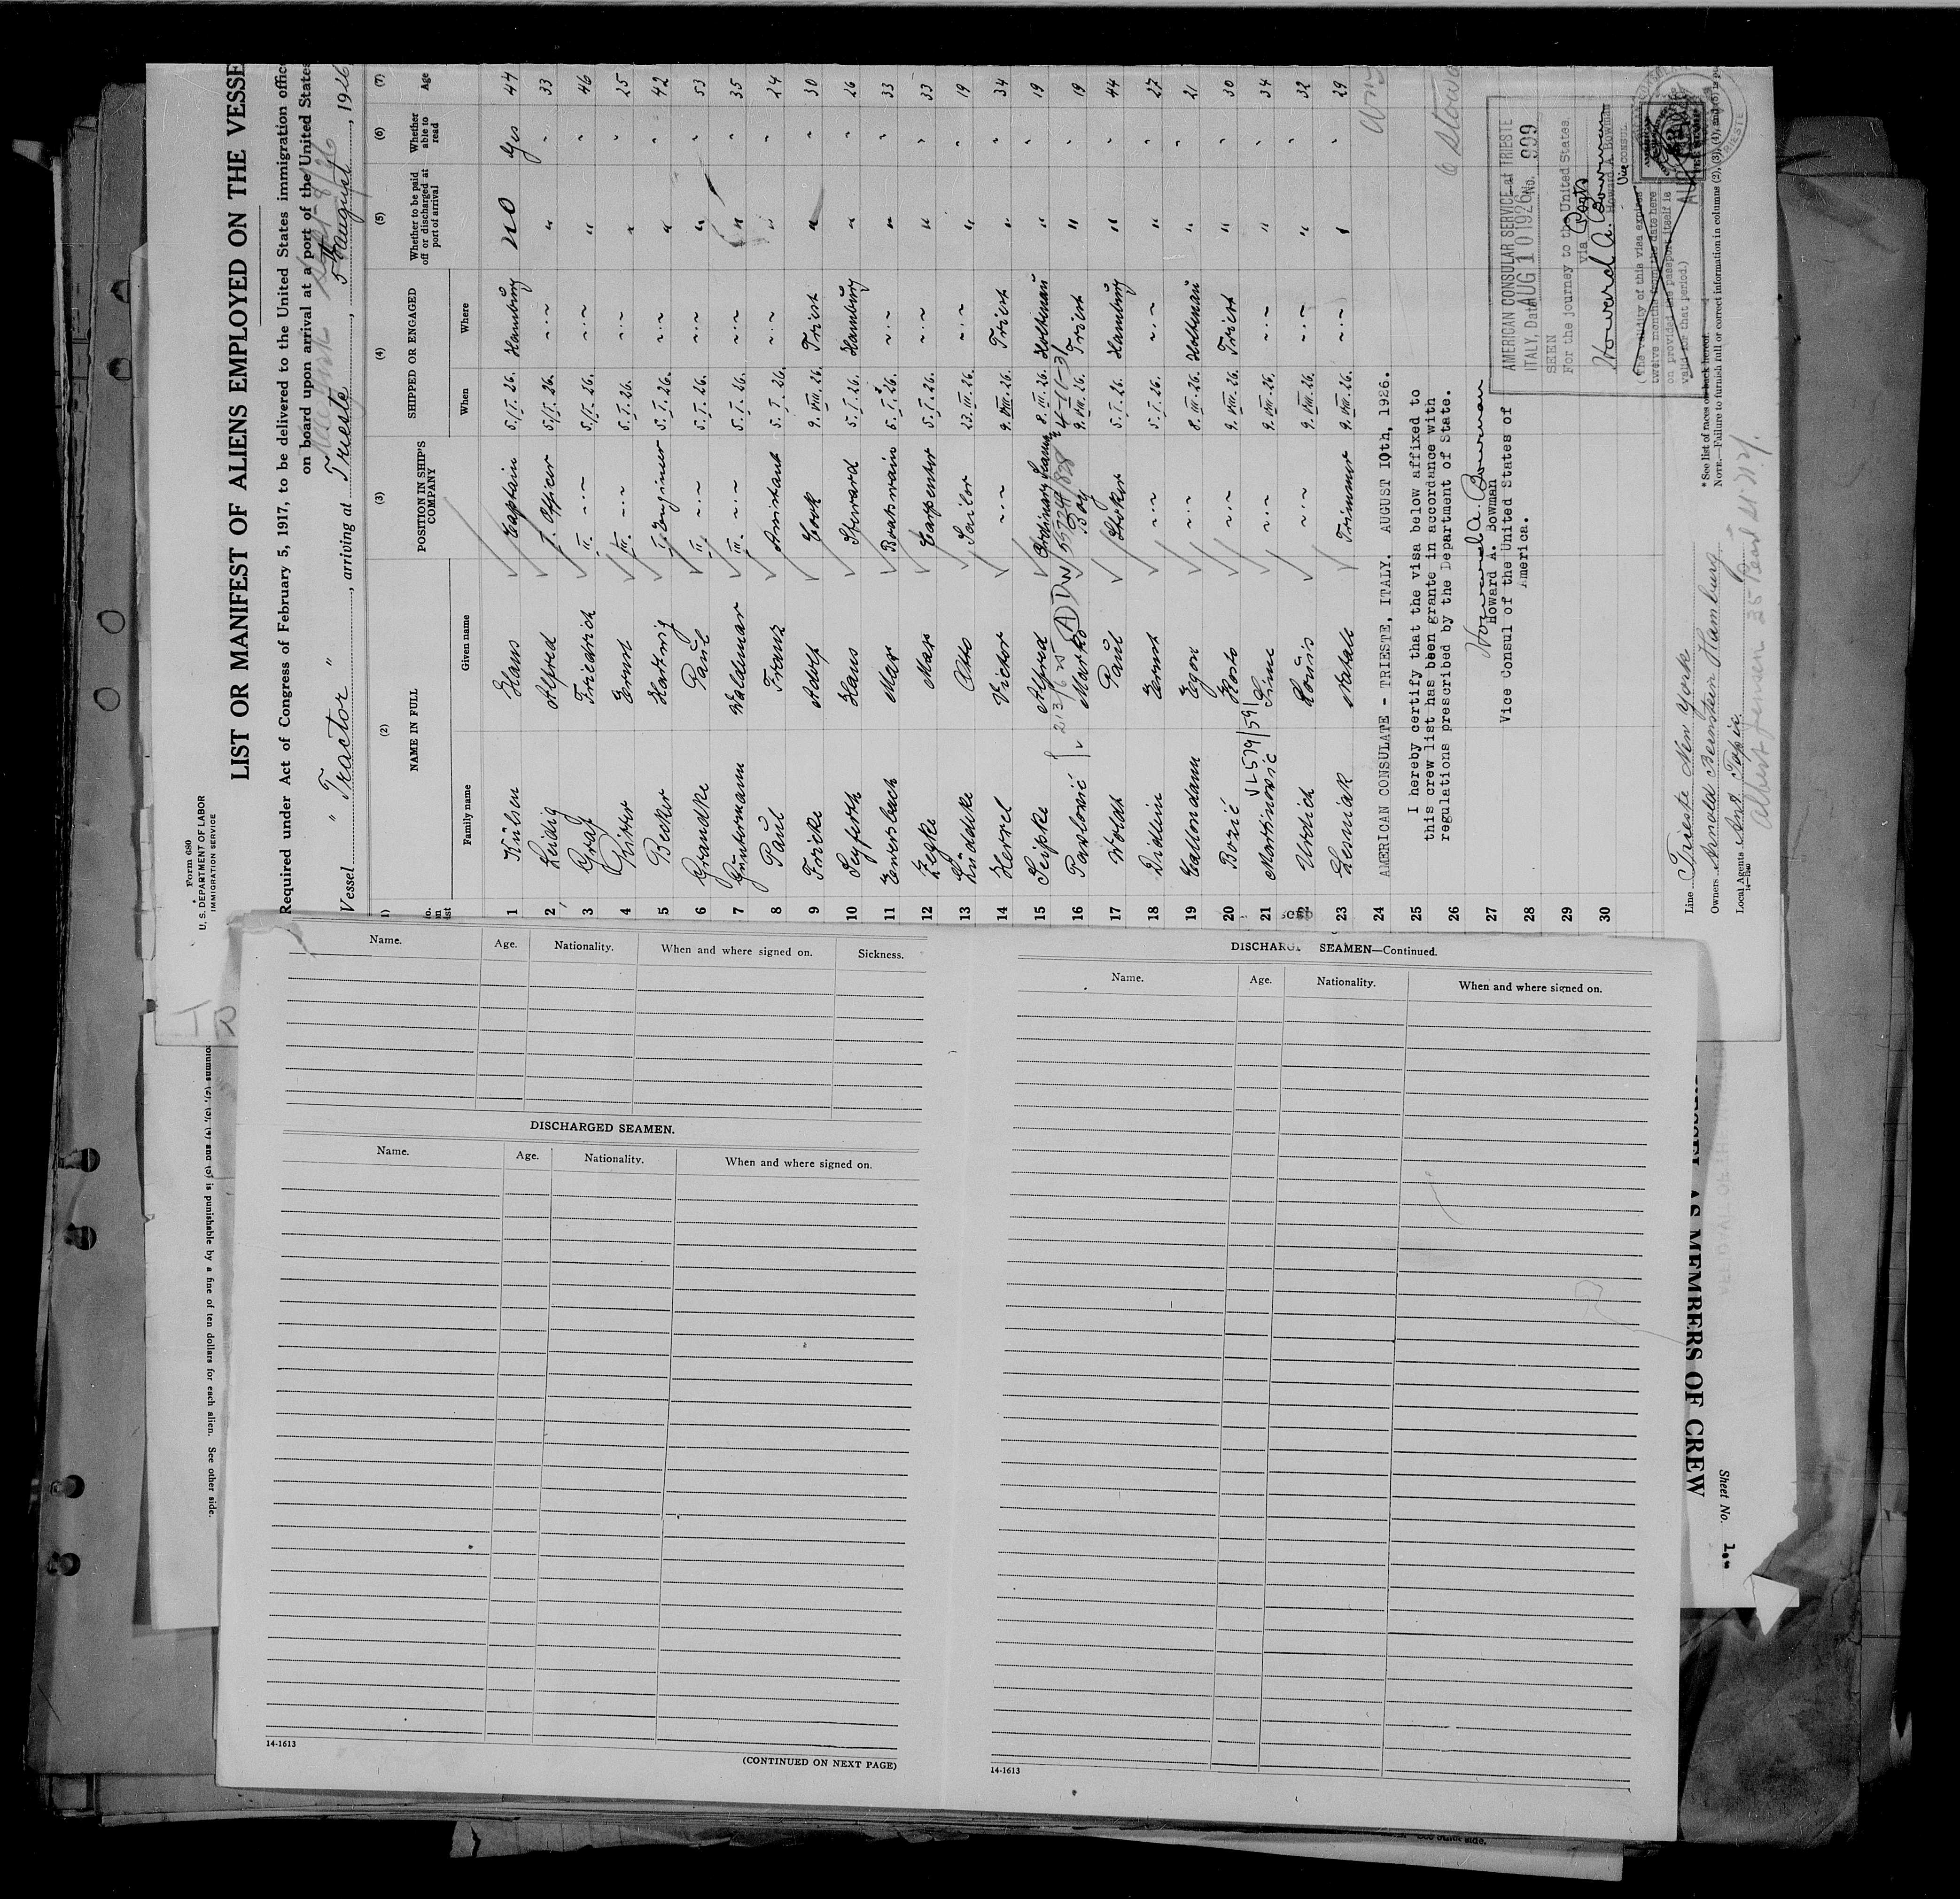 Form 680
U. S. DEPARTMENT OF LABOR
IMMIGRATION SERVICE
LIST OR MANIFEST OF ALIENS EMPLOYED ON THE VESSE
Required under Act of Congress of February 5, 1917, to be delivered to the United States immigration office
on board upon arrival at a port of the United States
Vessel " Tractor " , arriving at Trieste , 5th August , 1926
(2) (3) (4) (5) (6) (7)
NAME IN FULL POSITION IN SHIP'S COMPANY SHIPPED OR ENGAGED Whether to be paid off or discharged at port of arrival Whether able to read Age
Family name Given name When Where
1 Külsen Hans Captain 5./I. 26. Hamburg no Yes 44
2 Leidig Alfred I. Officer 5./I. 26. " " " 33
3 Graf Friedrich II. " " 5./I. 26. " " " 46
4 Ritter Ernst III. " " 5. I. 26. " " " 25
5 Becker Hartwig I Engineer 5. I. 26. " " " 42
6 Grandke Paul II. " " 5. I. 26. " " " 53
7 Guntermann Waldmar III. " " 5. I. 26. " " " 35
8 Paul Franz Assistant 5. I. 26. " " " 24
9 Fricke Adolf Cook 9. VIII. 26. Triest " " 30
10 Seyferth Hans Steward 5. I. 26. Hamburg " " 26
11 Ewersbach Max Boatswain 5. I. 26. " " " 33
12 Zegke Max Carpenter 5. I. 26. " " " 33
13 Lüddeke Otto Sailor 23. III. 26. " " " 19
14 Herrel Victor " " 9. VIII. 26. Triest " " 34
15 Seipke Alfred Ordinary Seaman 8. III. 26. Holtenau " " 19
213/625
16 Pavlović Marko Boy 9. VIII. 26. Triest " " 19
17 Woldt Paul Stoker 5. I. 26. Hamburg " " 44
18 Didlein Ernst " " 5. I. 26. " " " 27
19 Callondann Egon " " 8. III. 26. Holtenau " " 21
20 Borić Kosto " " 9. VIII. 26. Triest " " 30
VL 579/591
21 Martinović Sime " " 9. VIII. 26. " " " 34
22 Urdich Louis " " 9. VIII. 26. " " " 32
23 Lesniak Natale Trimmer 9. VIII. 26. " " " 29
24 AMERICAN CONSULATE - TRIESTE, ITALY. AUGUST 10th, 1926.
25 I hereby certify that the visa below affixed to
this crew list has been grante in accordance with
26 regulations prescribed by the Department of State.
27 Howard A. Bowman
Howard A. Bowman
28 Vice Consul of the United States of
America.
29
30
6 stowa
AMERICAN CONSULAR SERVICE at TRIESTE
ITALY, Date AUG 10 1926 No. 999
SEEN
For the journey to the United States.
via Ports
Howard A. Bowman
Howard A. Bowman
Vice CONSUL
(The validity of this visa expires
twelve months from the date here
on provided the passport itself is
valid for that period.)
TRIESTE
Line Trieste New York
Owners Arnold Bernstein Hamburg
Local Agents Ant. Topic.
Albert Jensen 35 Pearl St. N.Y.
14—1240
* See list of races on back hereof.
NOTE.—Failure to furnish full or correct information in columns (2), (3), (4), and (6) is pu
TR
olumns (2), (3), (4) and (6) is punishable by a fine of ten dollars for each alien. See other side.
Name. Age. Nationality. When and where signed on. Sickness.
DISCHARGED SEAMEN.
Name. Age. Nationality. When and where signed on.
14-1613
(CONTINUED ON NEXT PAGE)
DISCHARG SEAMEN—Continued.
Name. Age. Nationality. When and where signed on.
14-1613
VESSEL AS MEMBERS OF CREW
Sheet No. 1.
See other side.